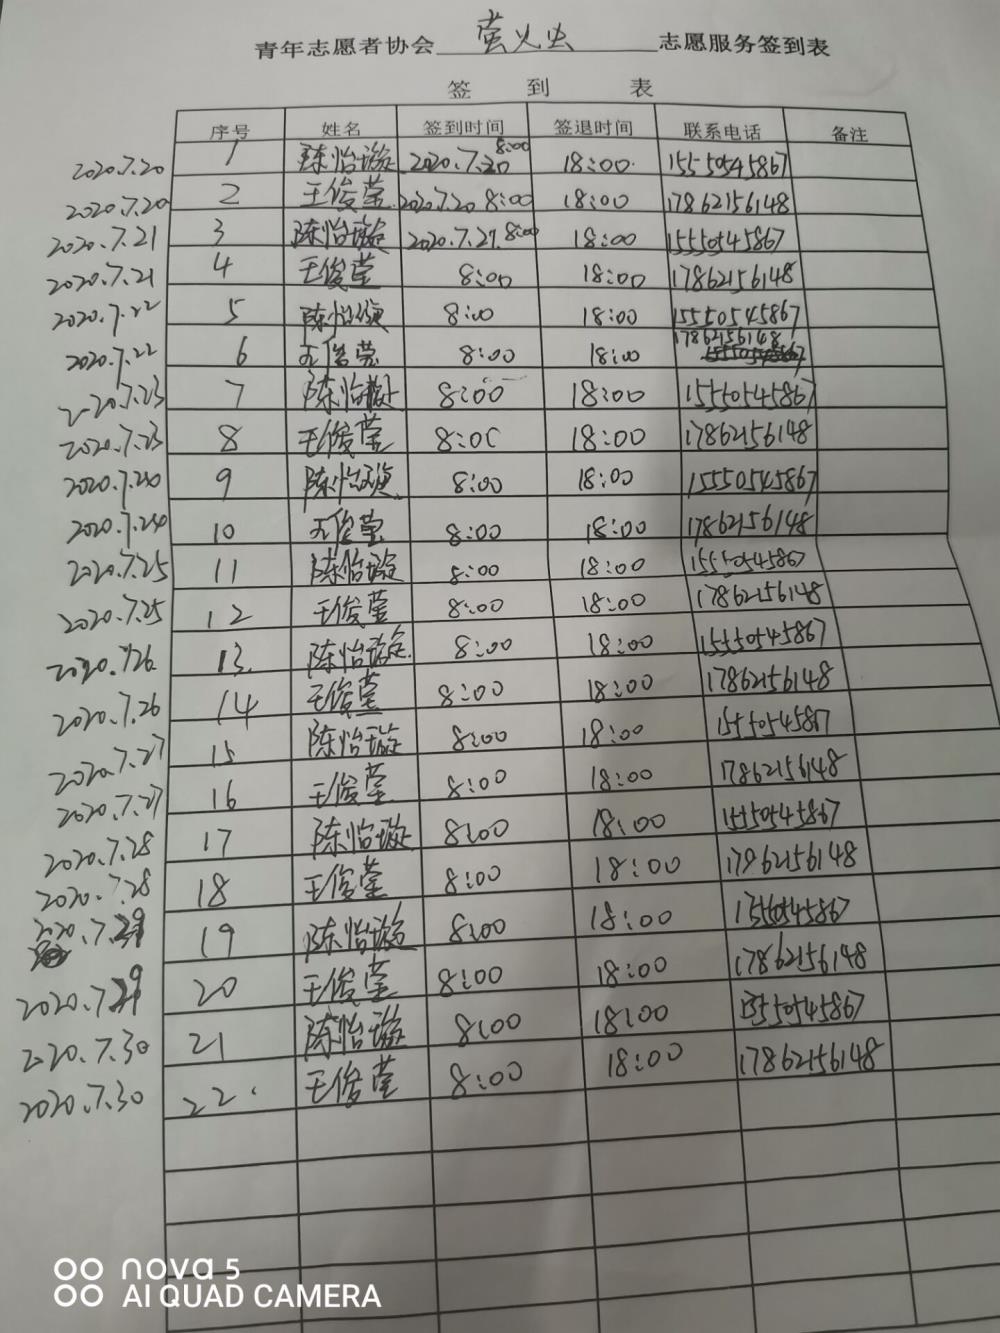 青年志愿者协会 萤火虫 志愿服务签到表
签 到 表
序号 姓名 签到时间 签退时间 联系电话 备注
2020.7.20 1 陈怡璇 2020.7.20 8:00 18:00 15550545867
2020.7.20 2 王俊莹 2020.7.20 8:00 18:00 17862156148
2020.7.21 3 陈怡璇 2020.7.21.8:00 18:00 15550545867
2020.7.21 4 王俊莹 8:00 18:00 17862156148
2020.7.22 5 陈怡璇 8:00 18:00 15550545867
2020.7.22 6 王俊莹 8:00 18:00 17862156148
2020.7.23 7 陈怡璇 8:00 18:00 15550545867
2020.7.23 8 王俊莹 8:00 18:00 17862156148
2020.7.240 9 陈怡璇 8:00 18:00 15550545867
2020.7.240 10 王俊莹 8:00 18:00 17862156148
2020.7.25 11 陈怡璇 8:00 18:00 15550545867
2020.7.25 12 王俊莹 8:00 18:00 17862156148
2020.7.26 13. 陈怡璇 8:00 18:00 15550545867
2020.7.26 14 王俊莹 8:00 18:00 17862156148
2020.7.27 15 陈怡璇 8:00 18:00 15550545867
2020.7.27 16 王俊莹 8:00 18:00 17862156148
2020.7.28 17 陈怡璇 8:00 18:00 15550545867
2020.7.28 18 王俊莹 8:00 18:00 17962156148
2020.7.29 19 陈怡璇 8:00 18:00 15550545867
2020.7.29 20 王俊莹 8:00 18:00 17862156148
2020.7.30 21 陈怡璇 8:00 18:00 15550545867
2020.7.30 22. 王俊莹 8:00 18:00 17862156148
nova 5
AI QUAD CAMERA